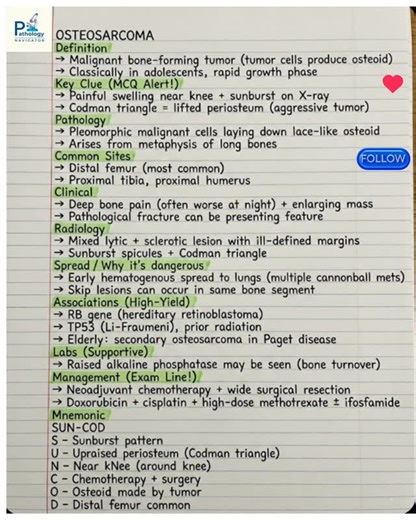 Pathology
NAVIGATOR
OSTEOSARCOMA
Definition
→ Malignant bone-forming tumor (tumor cells produce osteoid)
→ Classically in adolescents, rapid growth phase
Key Clue (MCQ Alert!)
→ Painful swelling near knee + sunburst on X-ray
→ Codman triangle = lifted periosteum (aggressive tumor)
Pathology
→ Pleomorphic malignant cells laying down lace-like osteoid
→ Arises from metaphysis of long bones
Common Sites
FOLLOW
→ Distal femur (most common)
→ Proximal tibia, proximal humerus
Clinical
→ Deep bone pain (often worse at night) + enlarging mass
→ Pathological fracture can be presenting feature
Radiology
→ Mixed lytic + sclerotic lesion with ill-defined margins
→ Sunburst spicules + Codman triangle
Spread / Why it's dangerous
→ Early hematogenous spread to lungs (multiple cannonball mets)
→ Skip lesions can occur in same bone segment
Associations (High-Yield)
→ RB gene (hereditary retinoblastoma)
→ TP53 (Li-Fraumeni), prior radiation
→ Elderly: secondary osteosarcoma in Paget disease
Labs (Supportive)
→ Raised alkaline phosphatase may be seen (bone turnover)
Management (Exam Line!)
→ Neoadjuvant chemotherapy + wide surgical resection
→ Doxorubicin + cisplatin + high-dose methotrexate ± ifosfamide
Mnemonic
SUN-COD
S – Sunburst pattern
U – Upraised periosteum (Codman triangle)
N – Near kNee (around knee)
C – Chemotherapy + surgery
O – Osteoid made by tumor
D – Distal femur common